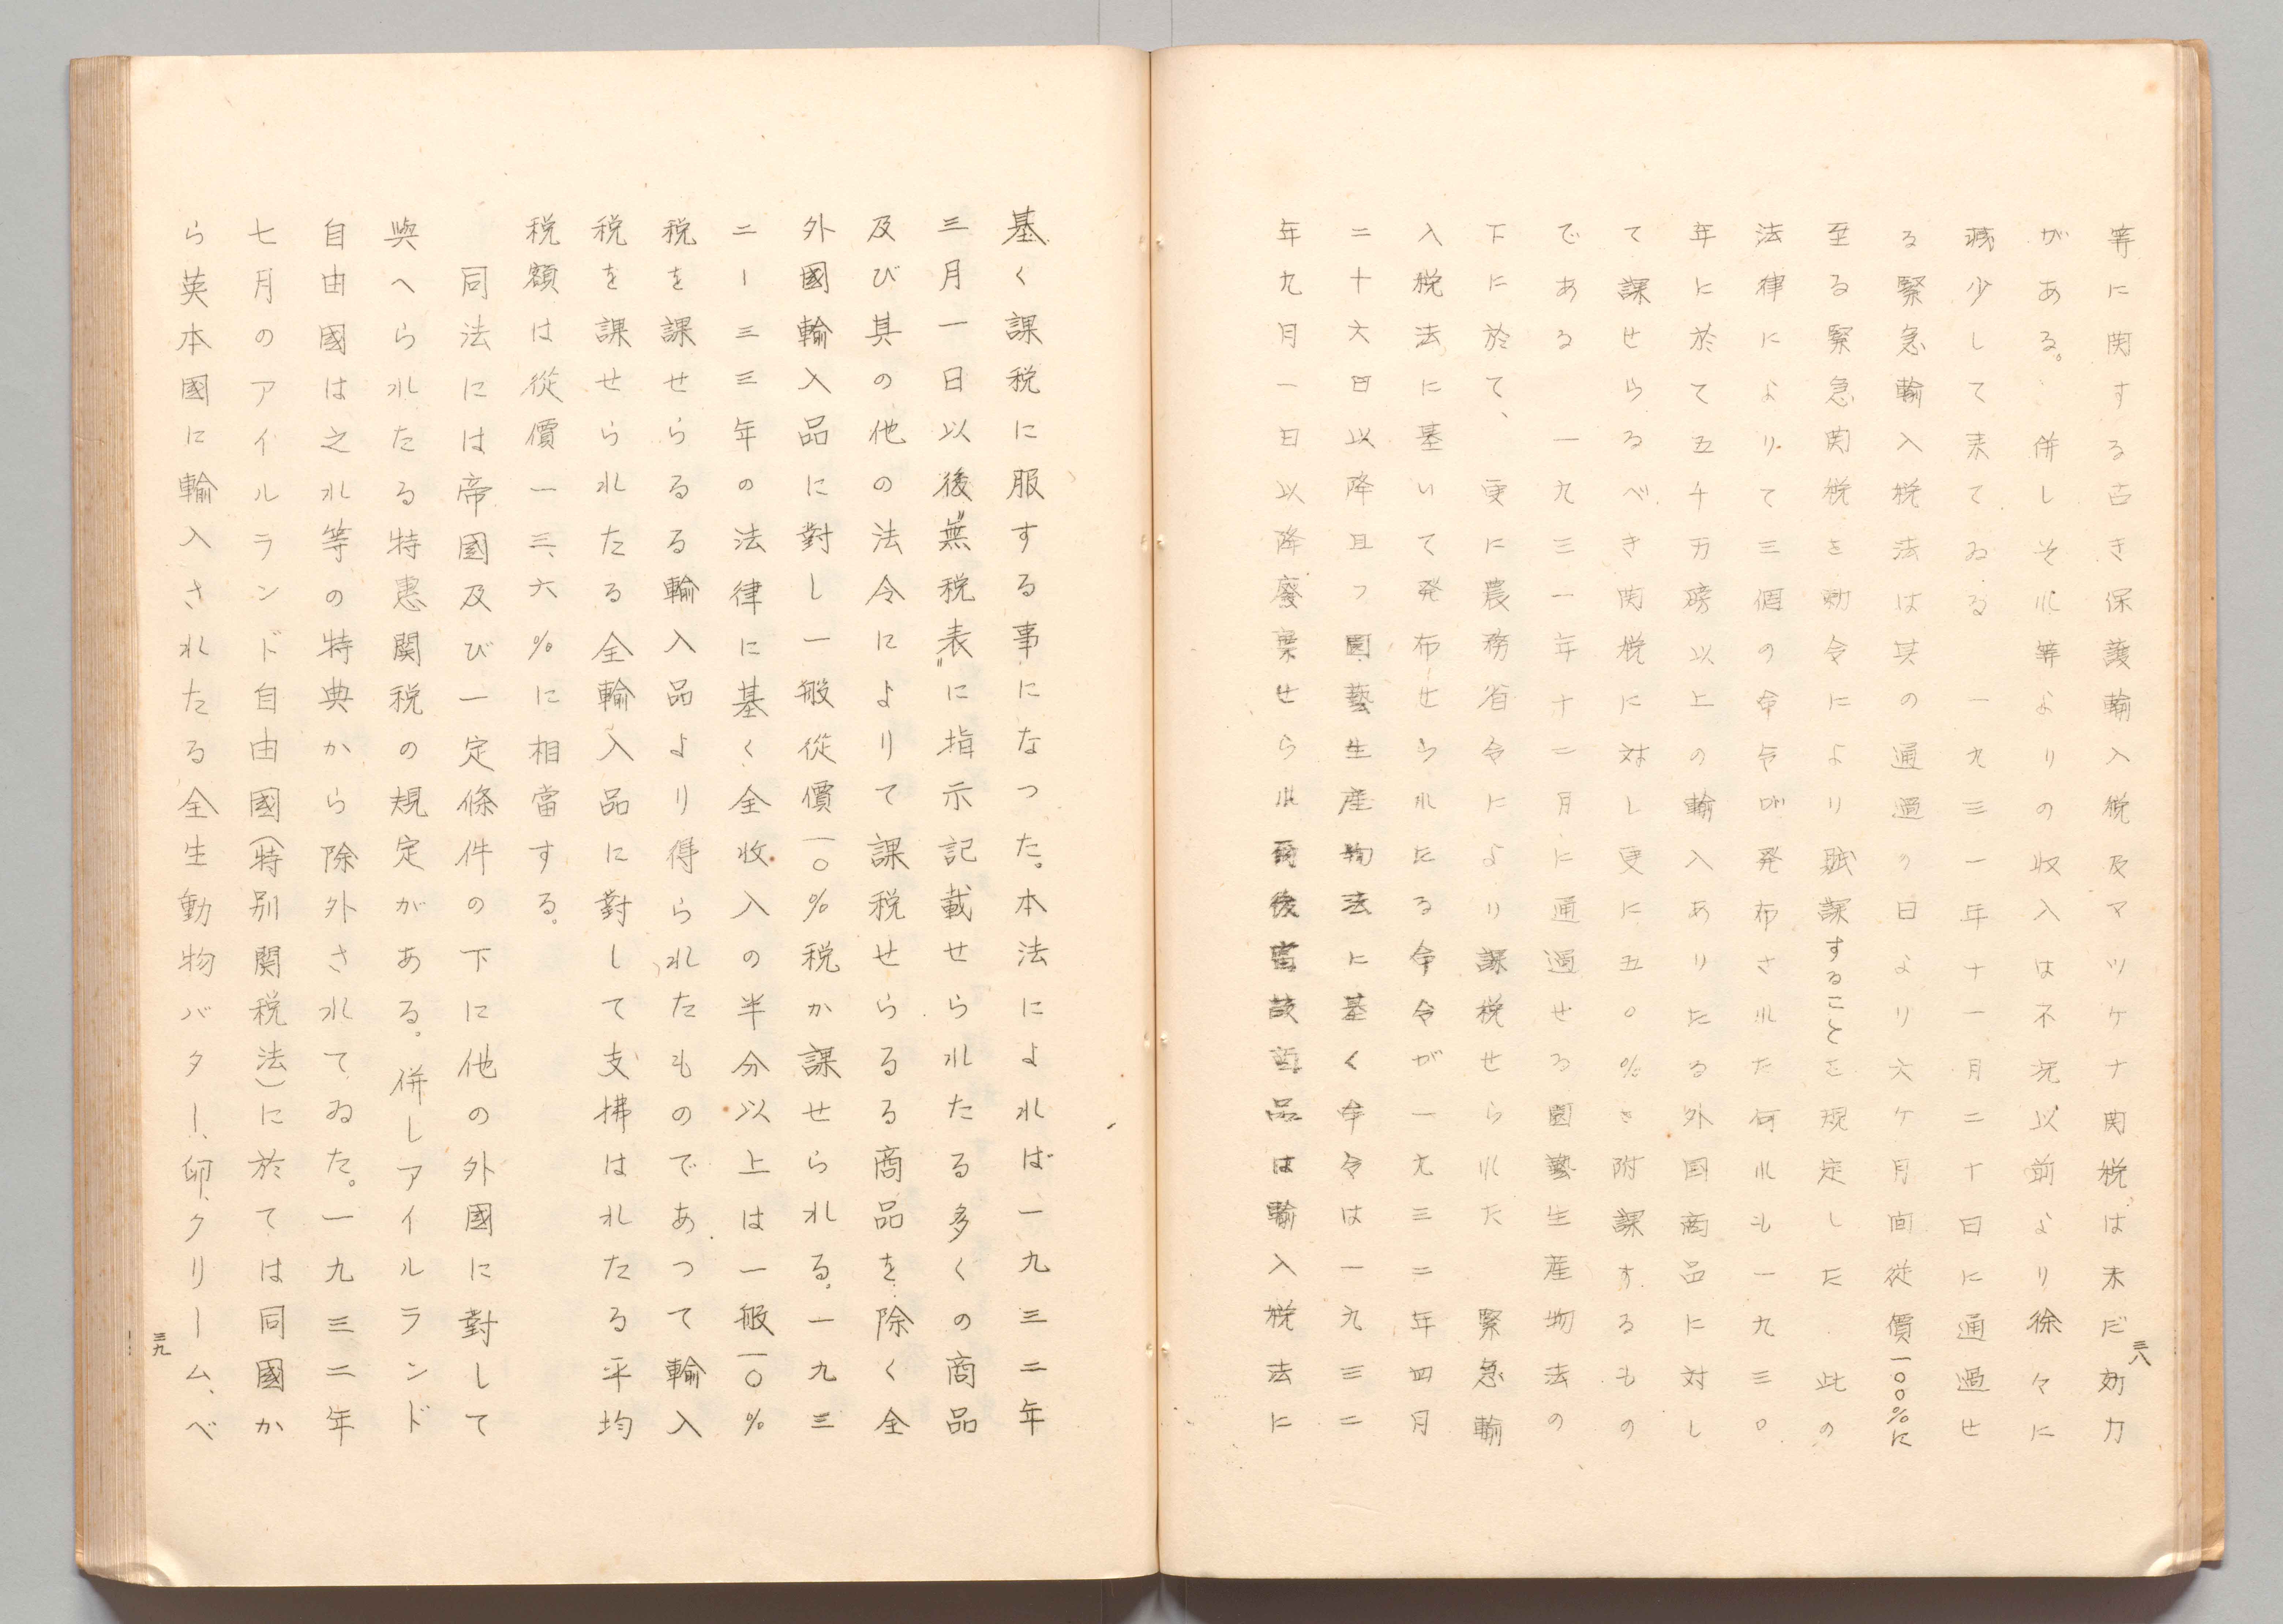 等に関する古き保護輸入税及マツケナ関税は未だ効力
がある。併しそれ等よりの収入は不況以前より徐々に
減少して来てゐる 一九三一年十一月二十日に通過せ
る緊急輸入税法は其の通過の日より六ケ月間従價一〇〇%に
至る緊急関税を勅令により賦課することを規定した 此の
法律によりて三個の命令が発布された何れも一九三〇
年に於て五千万磅以上の輸入ありたる外国商品に対し
て課せらるべき関税に対し更に五〇%を附課するもの
である 一九三一年十二月に通過せる園藝生産物法の
下に於て、更に農務省令により課税せられた 緊急輸
入税法に基いて発布せられたる命令が一九三二年四月
二十六日以降且つ園藝生産物法に基く命令は一九三二
年九月一日以降廢棄せられ爾後當該商品は輸入税法に
三八
基く課税に服する事になつた。本法によれば一九三二年
三月一日以後"無税表"に指示記載せられたる多くの商品
及び其の他の法令によりて課税せらるる商品を除く全
外國輸入品に對し一般從價一〇%税か課せられる。一九三
二ー三三年の法律に基く全收入の半分以上は一般一〇%
税を課せらるる輸入品より得られたものであつて輸入
税を課せられたる全輸入品に對して支拂はれたる平均
税額は從價一三、六%に相當する。
同法には帝國及び一定條件の下に他の外國に對して
與へられたる特惠關税の規定がある。併しアイルランド
自由國は之れ等の特典から除外されてゐた。一九三二年
七月のアイルランド自由國(特別關税法)に於ては同國か
ら英本國に輸入されたる全生動物バター、卵、クリーム、ベ
三九